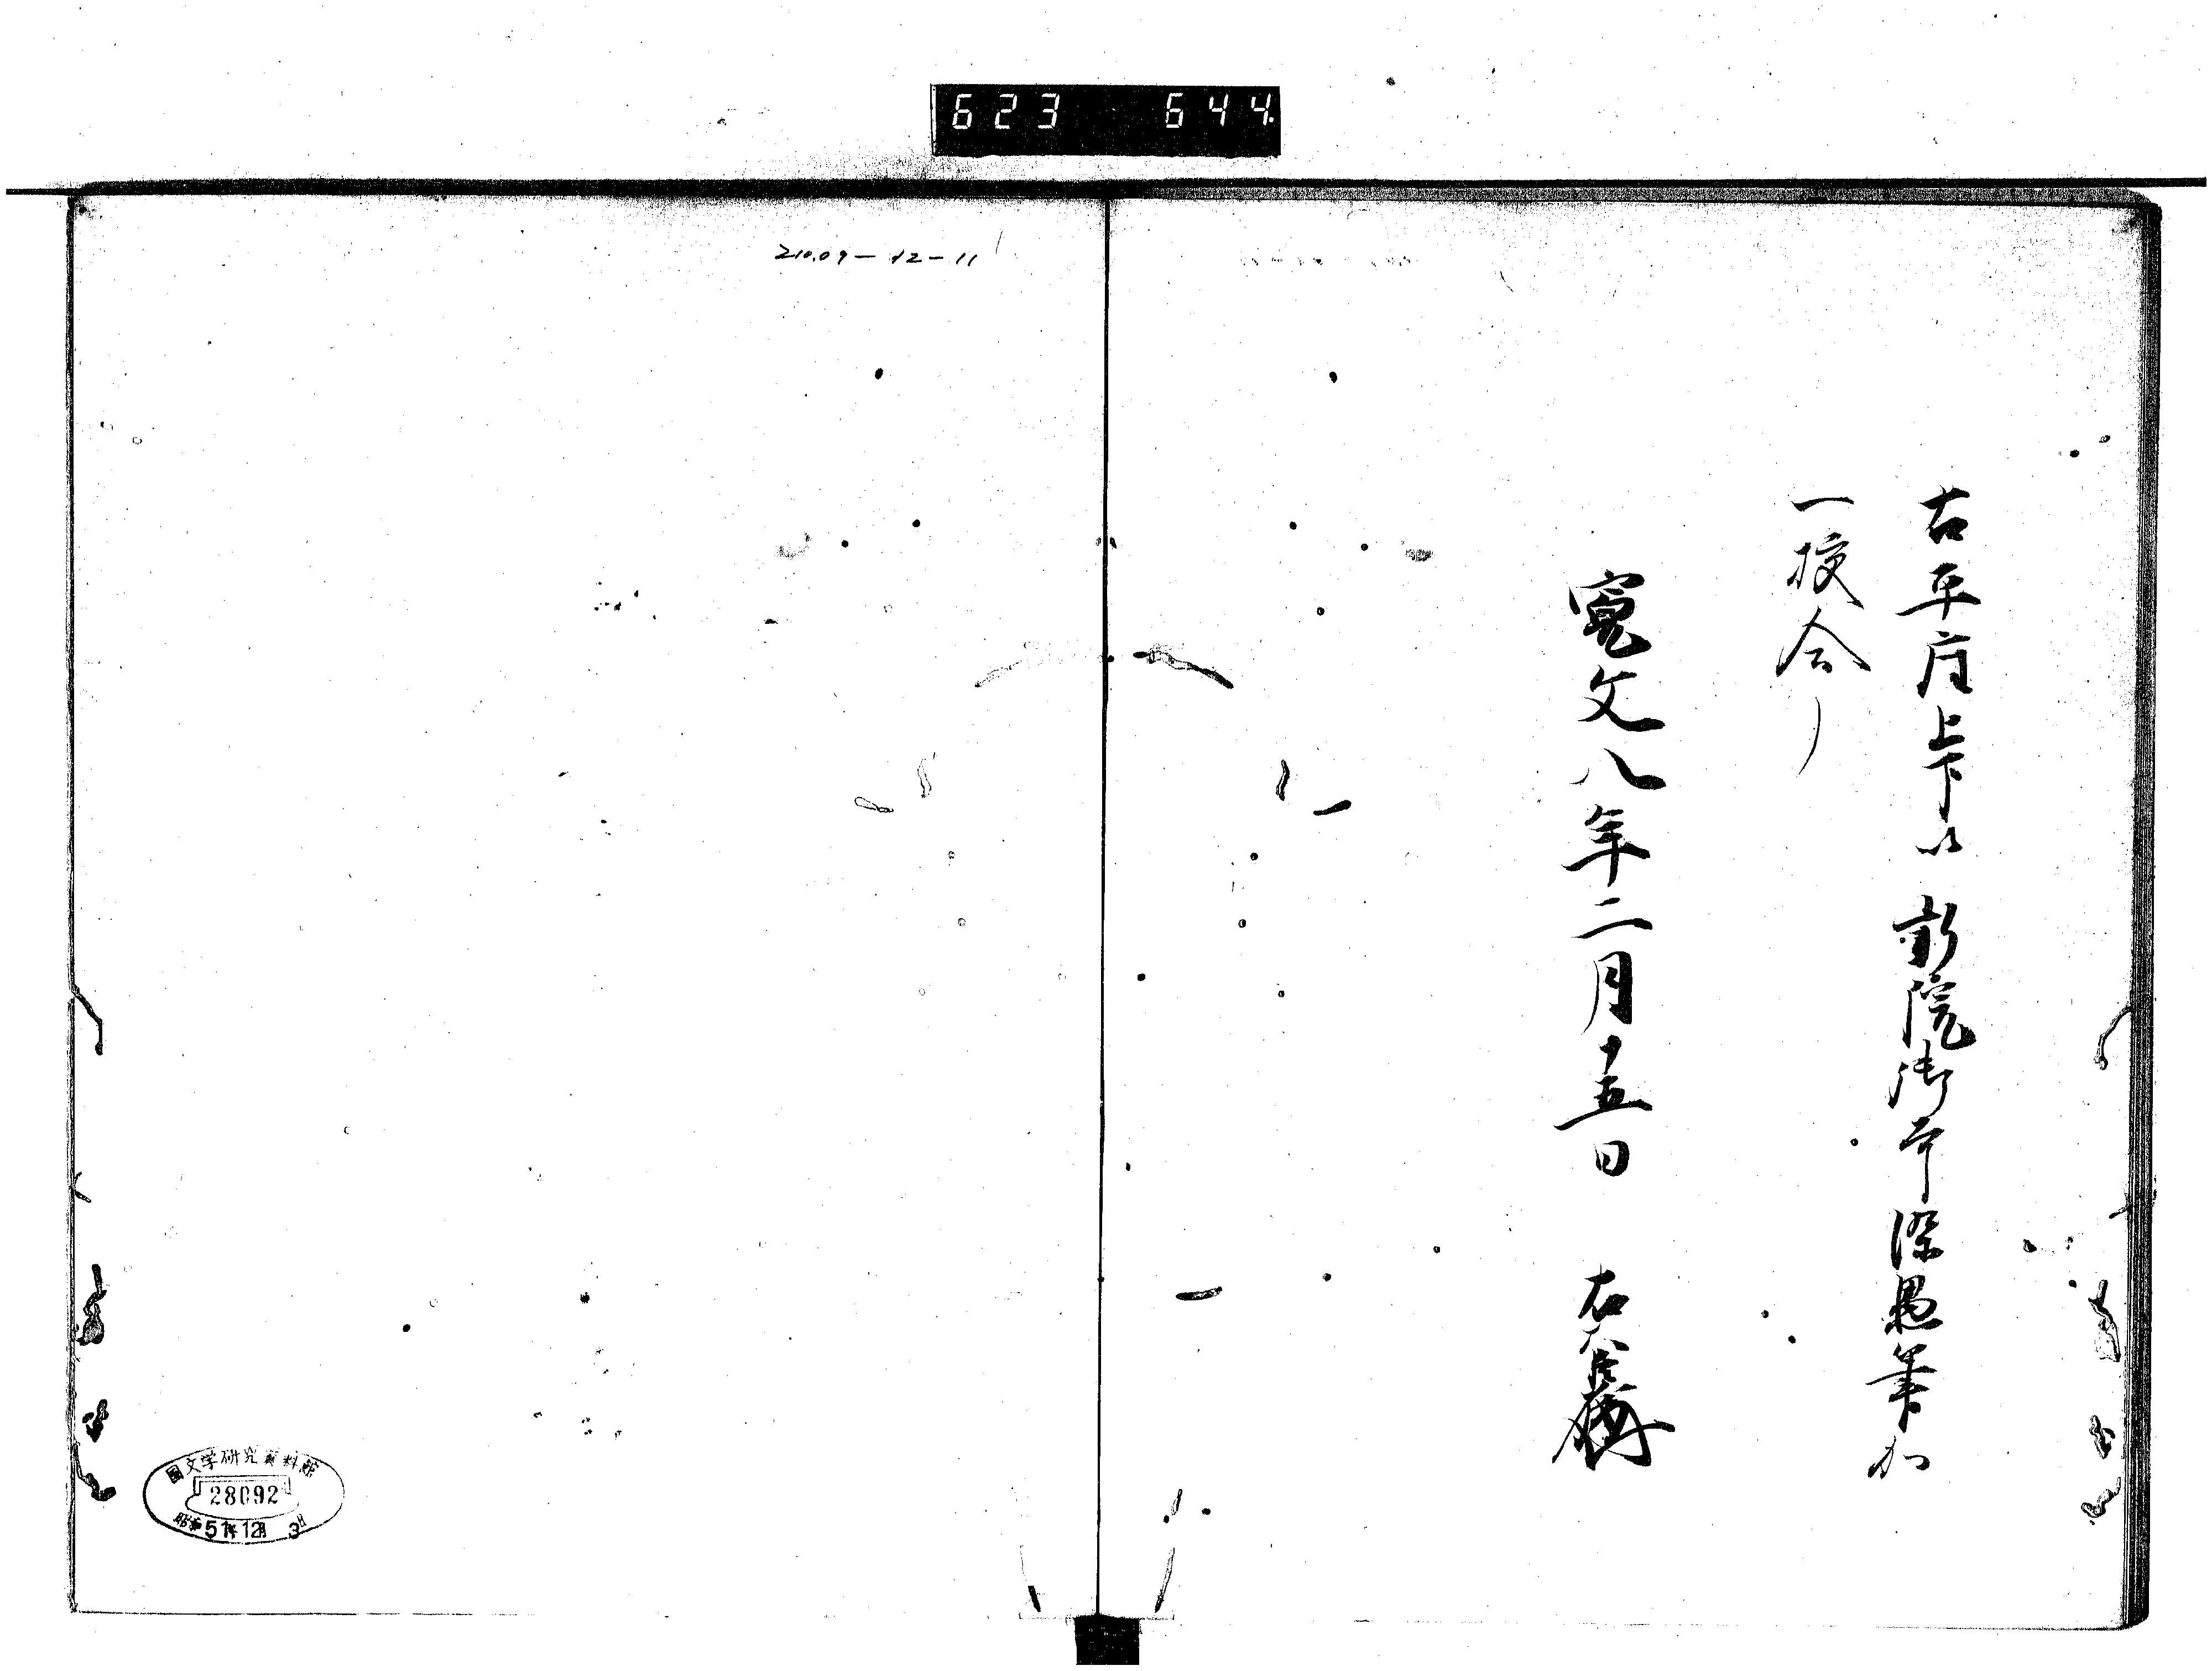 623 644.
右平座上下以 新院御本深愚筆加
一校合了
寛文八年二月十五日 右大臣
210.09-12-11
國文学研究資料館
28092
昭和51年12月3日